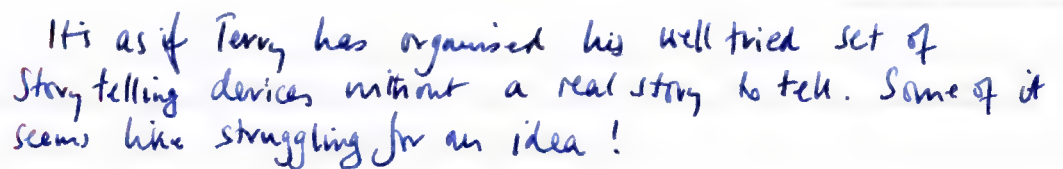 It's as if Terry has organised his well tried set of
Story telling devices without a real story to tell. Some of it
seems like struggling for an idea!